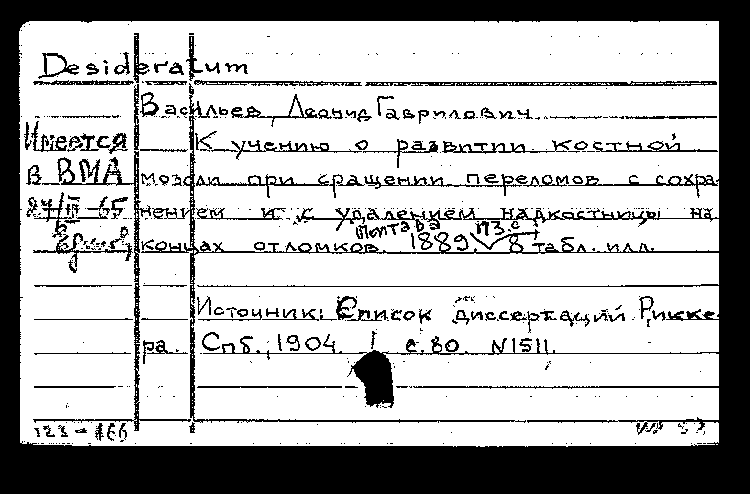 Desideratum
Васильев, Леонид Гаврилович
Имеется
в ВМА
27/II-65
К учению о развитии костной
мозоли при сращении переломов с сохра-
нением и с удалением надкостницы на
концах отломков. Полтава 1889. 173 с. 8 табл. илл.
Источник: Список диссертаций Рикке-
ра. Спб., 1904. с. 80. N 1511.
123-166